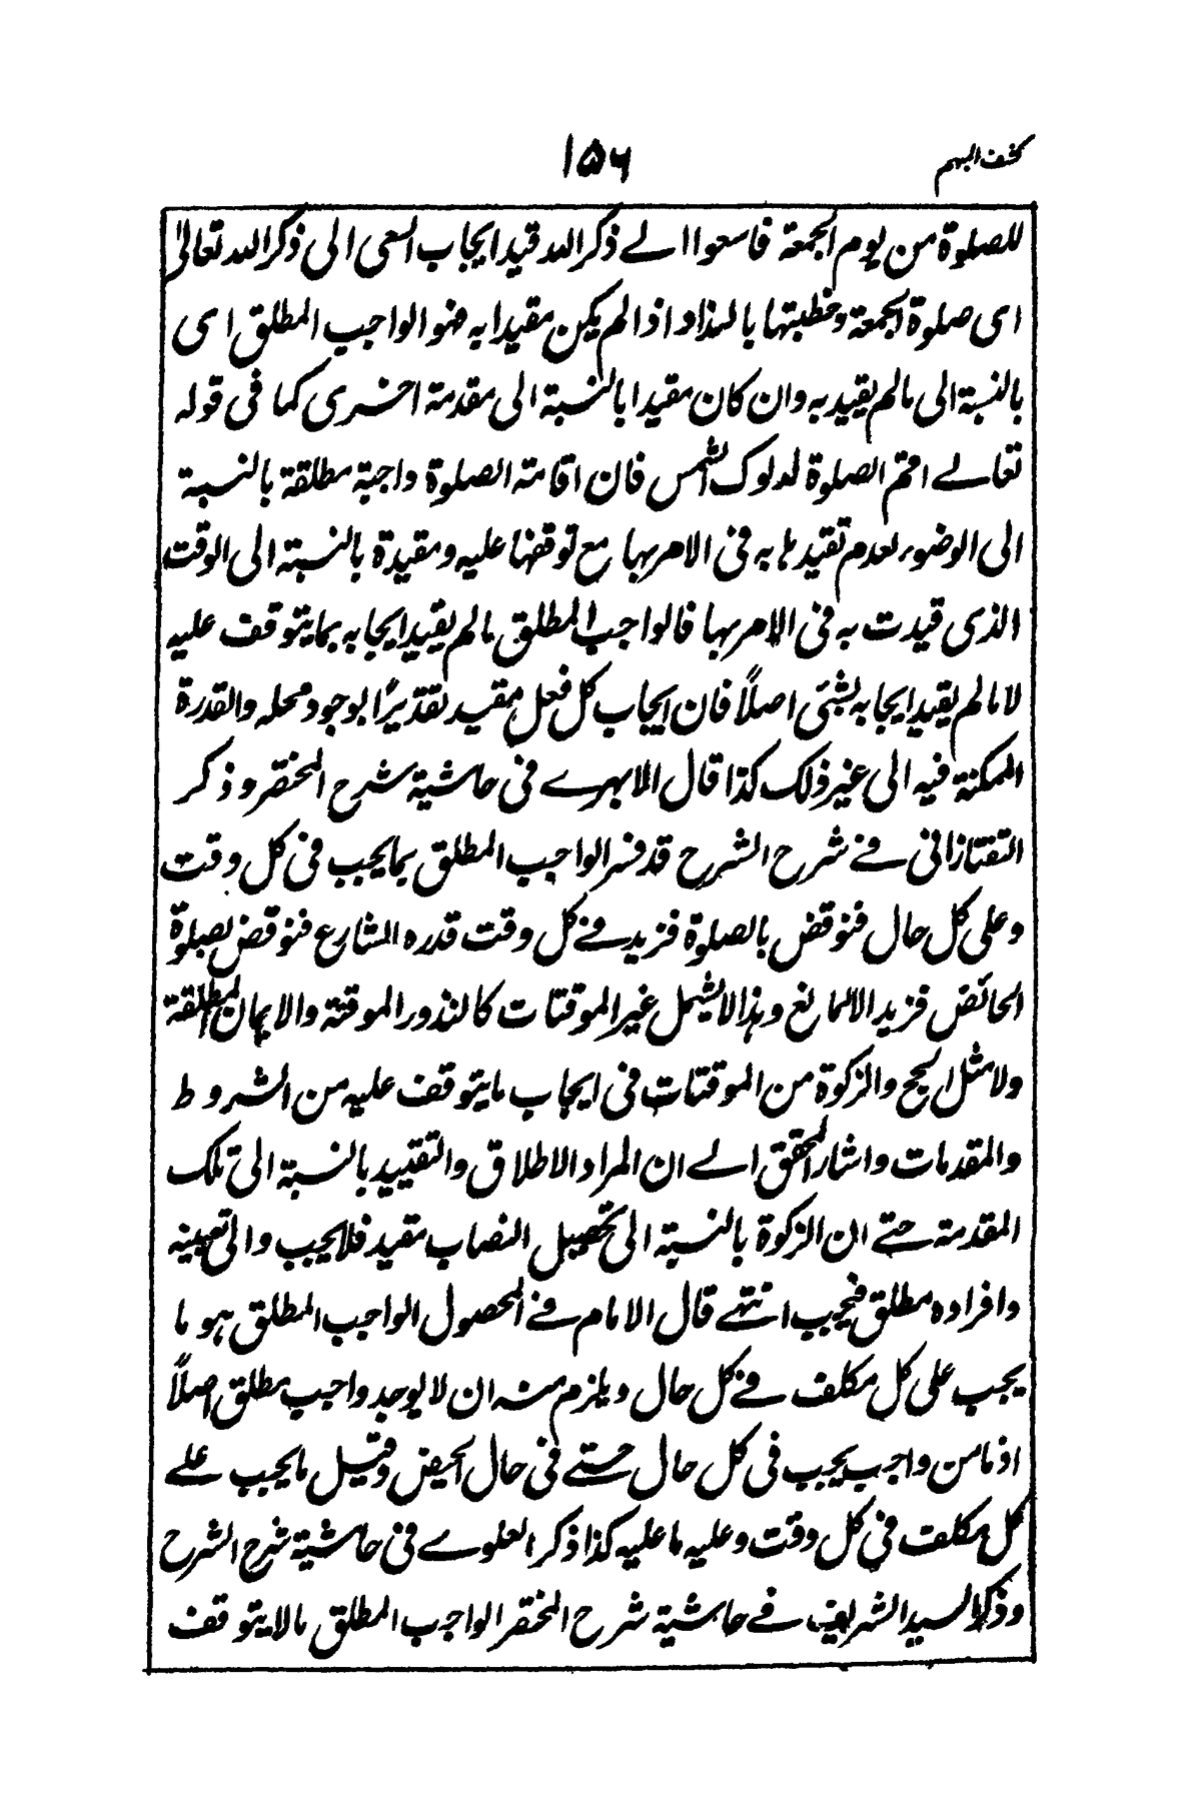 كشف المبهم
۱۵۶
للصلوة من يوم الجمعة فاسعوا الے ذكر الله قيد ايجاب السعى الى ذكر الله تعالىٰ
اى صلوة الجمعة وخطبتها بالنداء واذا لم يكن مقيدا به فهو الواجب المطلق اى
بالنسبة الى ما لم يقيد به وان كان مقيدا بالنسبة الى مقدمة اخرى كما فى قوله
تعالے اقم الصلوة لدلوك الشمس فان اقامة الصلوة واجبة مطلقة بالنسبة
الى الوضوء لعدم تقييدها به فى الامر بها مع توقفها عليه ومقيدة بالنسبة الى الوقت
الذى قيدت به فى الامر بها فالواجب المطلق ما لم يقيد ايجابه بما يتوقف عليه
لا ما لم يقيد ايجابه بشئ اصلاً فان ايجاب كل فعل مقيد تقديرًا بوجود محله والقدرة
الممكنة فيه الى غير ذلك كذا قال الابهرے فى حاشية شرح المختصر وذكر
التفتازانى فے شرح الشرح قد فسر الواجب المطلق بما يجب فى كل وقت
وعلى كل حال فنوقض بالصلوة فزيد فے كل وقت قدره الشارع فنوقض بصلوة
الحائض فزيد الا لمانع وهذا لا يشمل غير الموقتات كالنذور الموقتة والايمان المطلقة
ولا مثل الحج والزكوة من الموقتات فى ايجاب ما يتوقف عليه من الشروط
والمقدمات واشار المحقق الے ان المراد الاطلاق والتقييد بالنسبة الى تلك
المقدمة حتے ان الزكوة بالنسبة الى تحصيل النصاب مقيد فلا يجب والى تعيينه
وافراده مطلق فيجب انتهے قال الامام فے المحصول الواجب المطلق هو ما
يجب على كل مكلف فے كل حال ويلزم منه ان لا يوجد واجب مطلق اصلاً
اذ ما من واجب يجب فى كل حال حتے فى حال الحيض وقيل ما يجب علے
كل مكلف فى كل وقت وعليه ما عليه كذا ذكر العلوے فى حاشية شرح الشرح
وذكر السيد الشريف فے حاشية شرح المختصر الواجب المطلق ما لا يتوقف